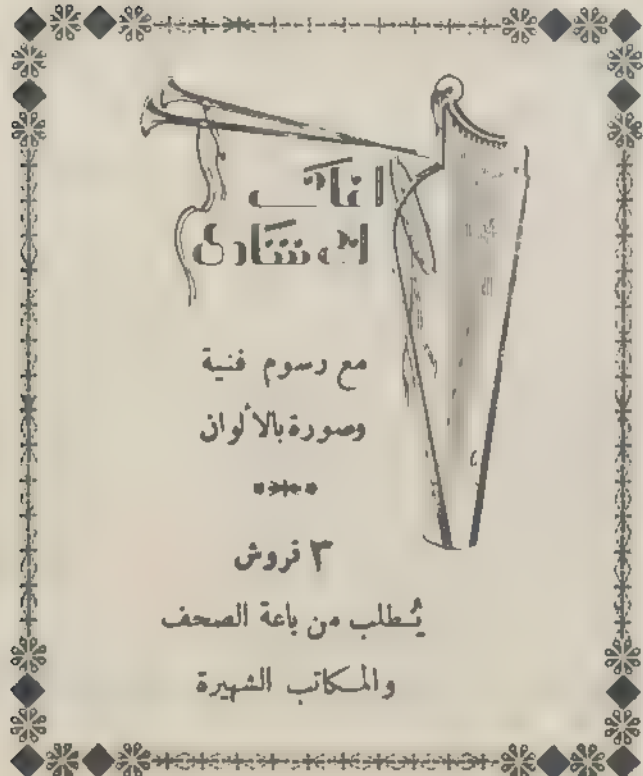 اغانى
ابى شادى
مع رسوم فنية
وصورة بالألوان
٣ قروش
يُطلب من باعة الصحف
والمكاتب الشهيرة